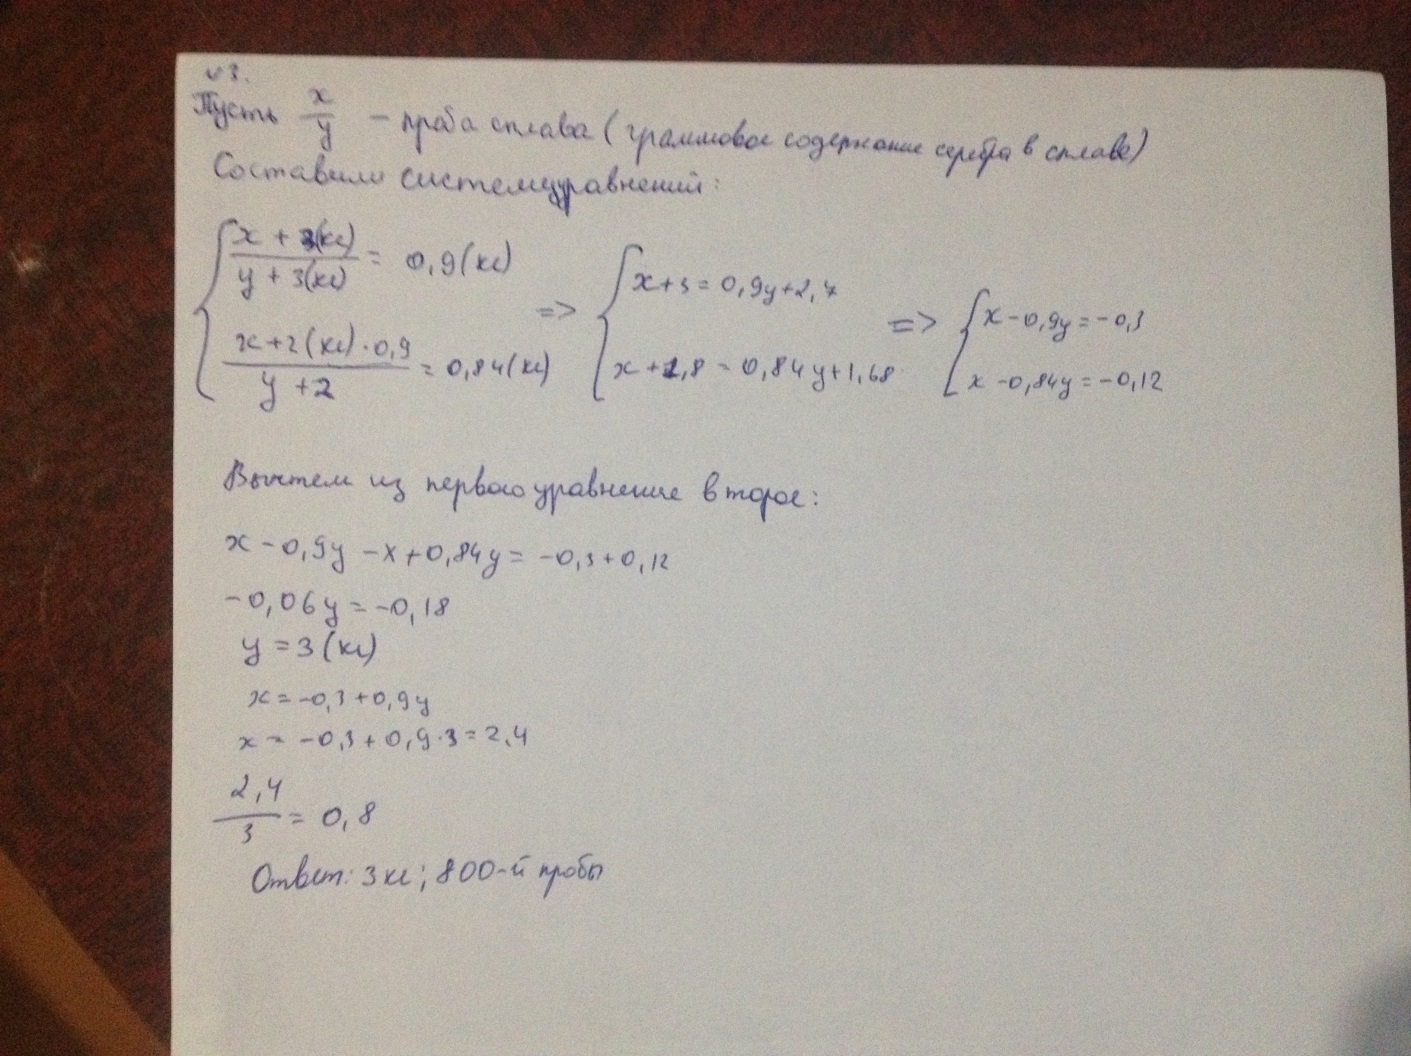 №3.
Пусть x/y – проба сплава (граммовое содержание серебра в сплаве)
Составим систему уравнений:
{ (x + 3(кг))/(y + 3(кг)) = 0,9(кг) => { x+3 = 0,9y+2,7 => { x-0,9y=-0,3
(x+2(кг)·0,9)/(y+2) = 0,84(кг) x+1,8=0,84y+1,68 x-0,84y=-0,12
Вычтем из первого уравнение второе:
x-0,9y-x+0,84y=-0,3+0,12
-0,06y=-0,18
y=3(кг)
x=-0,3+0,9y
x=-0,3+0,9·3=2,4
2,4/3 = 0,8
Ответ: 3кг; 800-й пробы